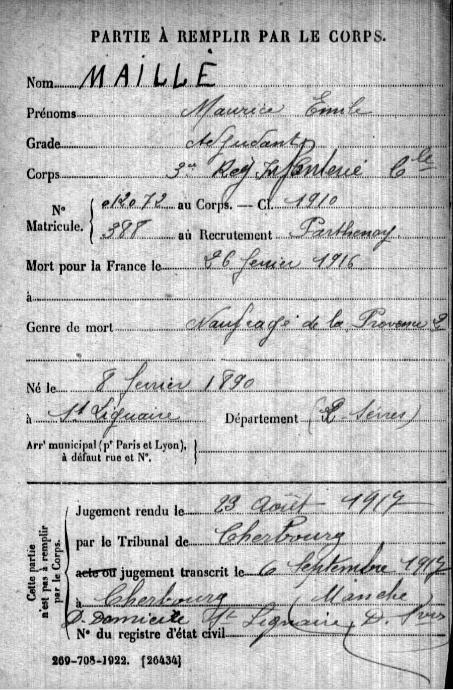 PARTIE À REMPLIR PAR LE CORPS.
Nom MAILLÉ
Prénoms Maurice Emile
Grade Adjudant
Corps 3me Reg Infanterie Cle
N° Matricule. { 012072 au Corps. — Cl. 1910
388 au Recrutement Parthenay
Mort pour la France le 26 fevrier 1916
à
Genre de mort Naufragé de la Provence 2
Né le 8 fevrier 1890
à St Liguaire Département (2 Sèvres)
Arrt municipal (pr Paris et Lyon), à défaut rue et N°. }
Cette partie n'est pas à remplir par le Corps.
Jugement rendu le 23 Août 1917
par le Tribunal de Cherbourg
acte ou jugement transcrit le 6 Septembre 1917
à Cherbourg (Manche)
D. Domicile St Liguaire, D. Sèvres
N° du registre d'état civil
269-708-1922. [26434]